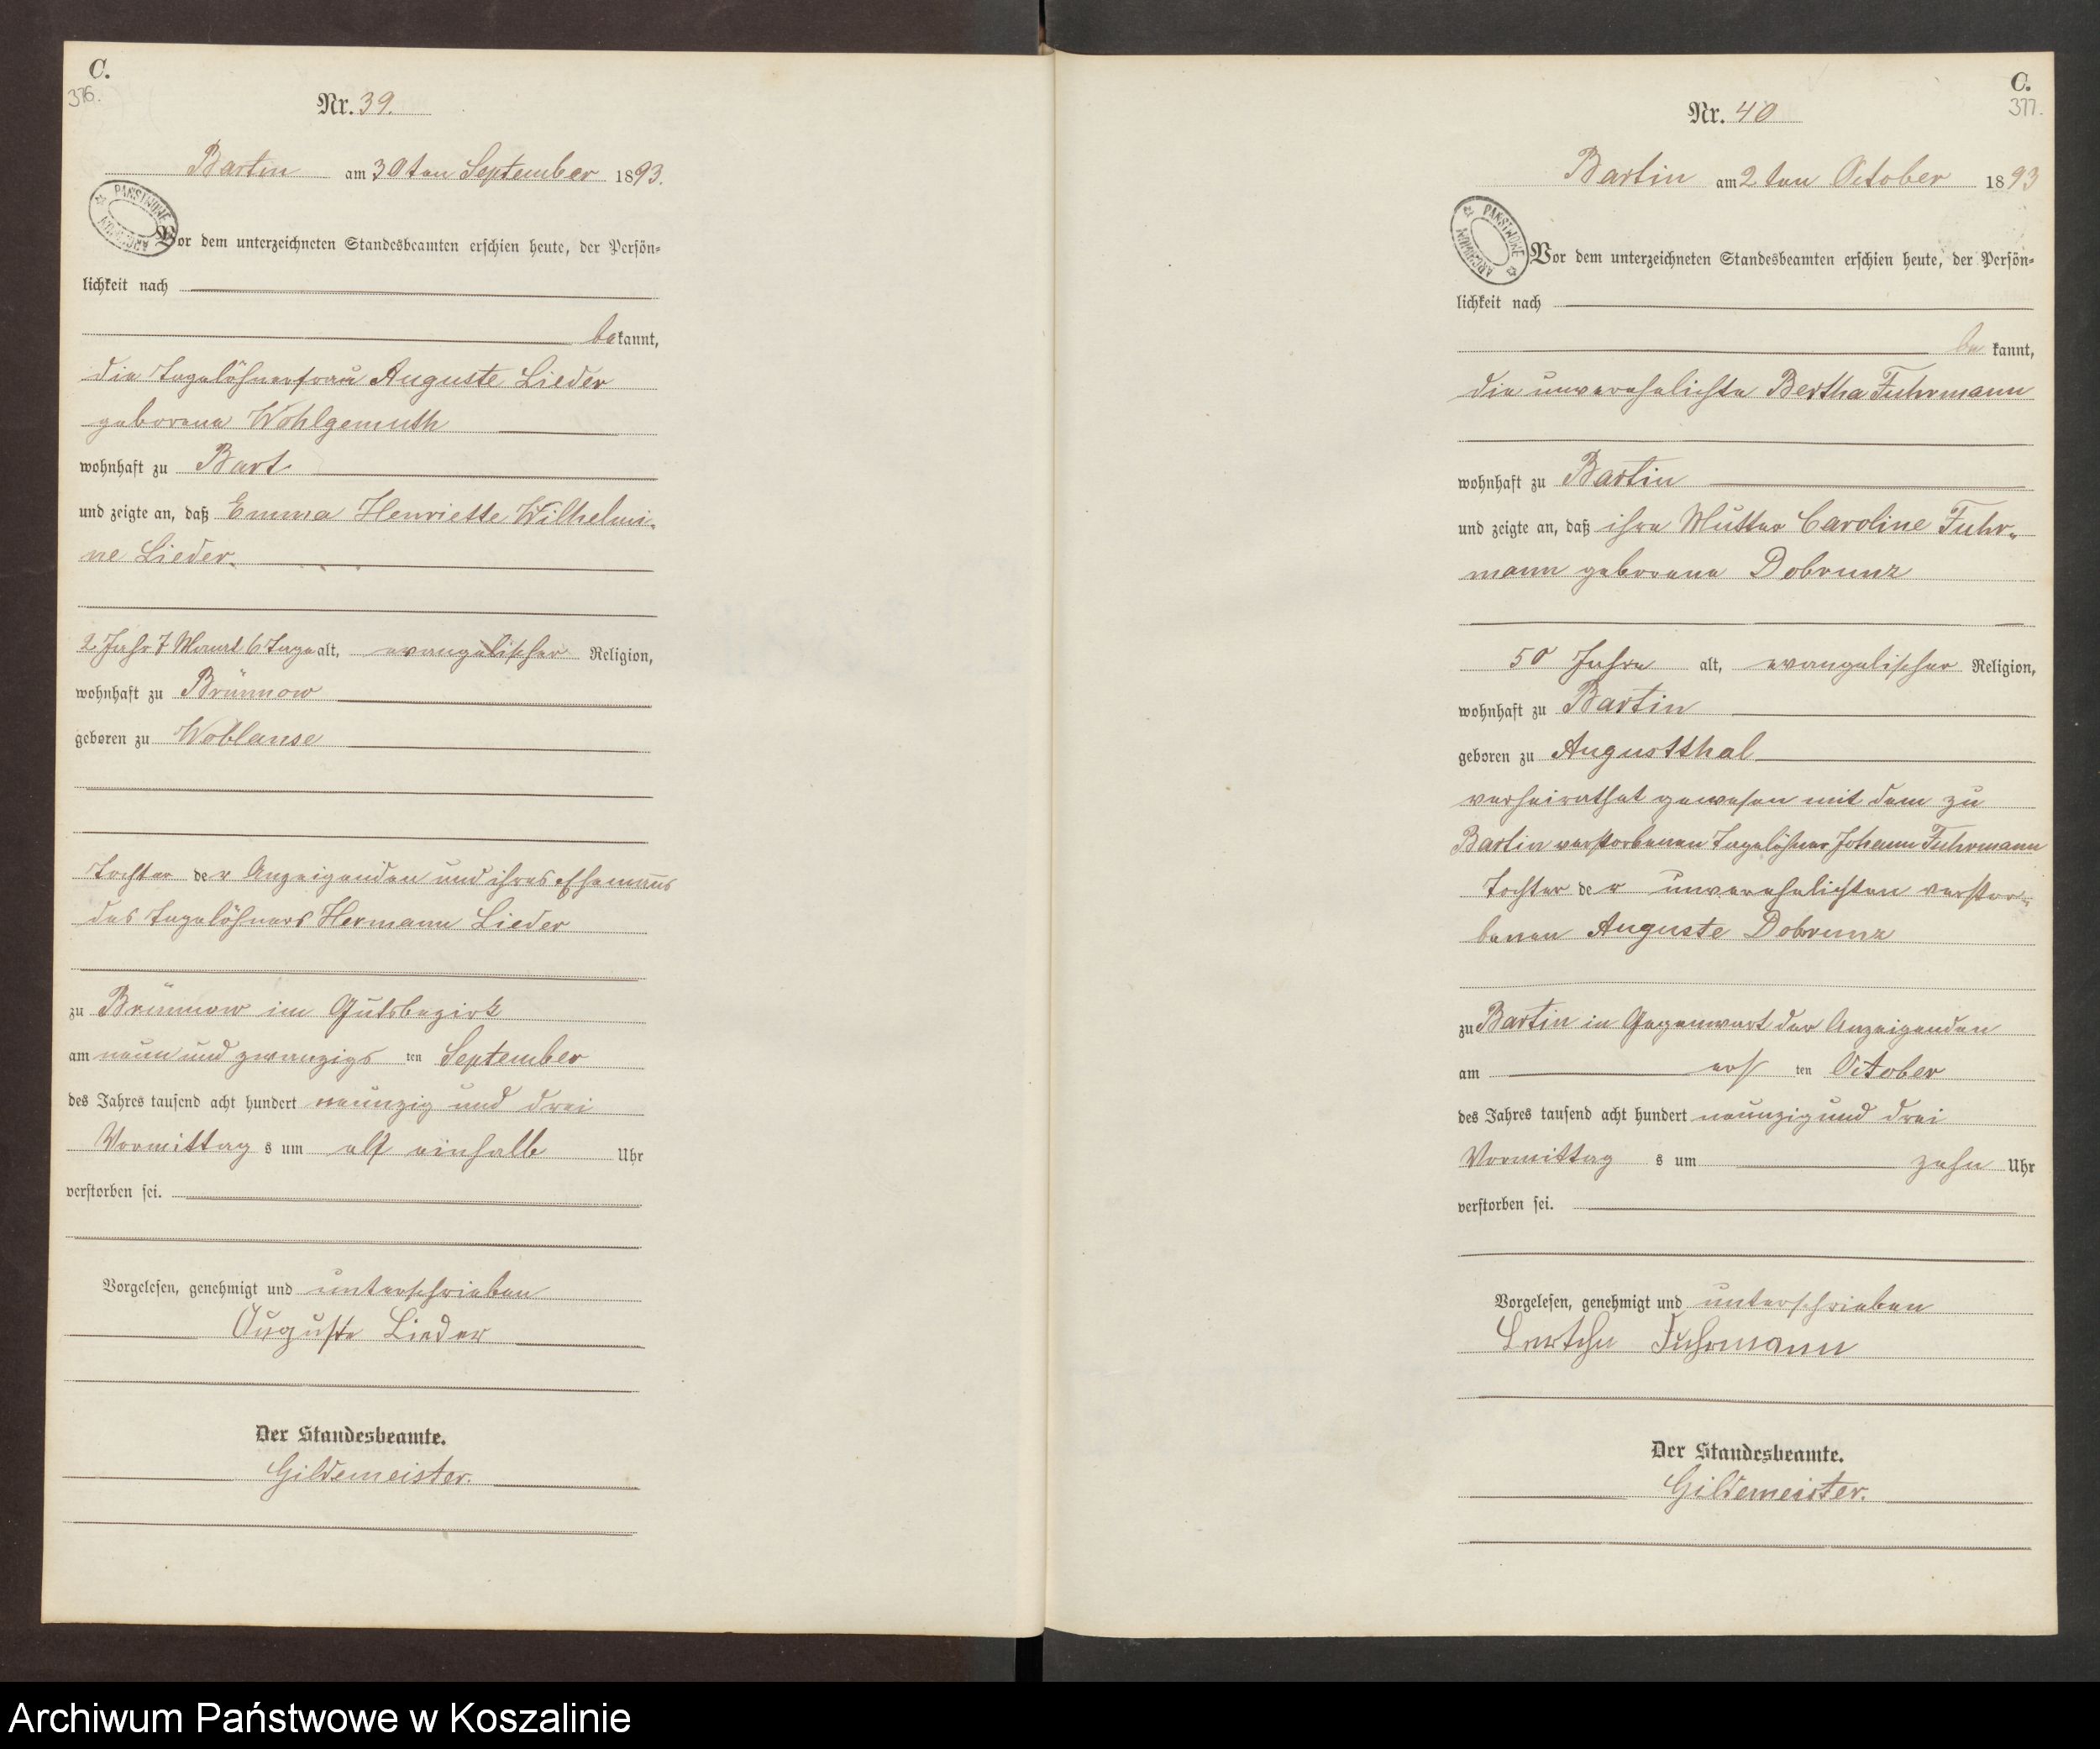 C.
376.
Nr. 39.
Bartin am 30ten September 1893.
PAŃSTWOWE ARCHIWUM
Vor dem unterzeichneten Standesbeamten erschien heute, der Persön=
lichkeit nach
bekannt,
die Tagelöhnerfrau Auguste Lieder
geborene Wohlgemuth
wohnhaft zu Bart
und zeigte an, daß Emma Henriette Wilhelmi-
ne Lieder.
2 Jahr 7 Monat 6 Tage alt, evangelischer Religion,
wohnhaft zu Brünnow
geboren zu Woblanse
Tochter der Anzeigenden und ihres Ehemanns
des Tagelöhners Hermann Lieder
zu Brünnow im Gutsbezirk
am neun und zwanzigsten September
des Jahres tausend acht hundert neunzig und drei
Vormittags um elf einhalb Uhr
verstorben sei.
Vorgelesen, genehmigt und unterschrieben
Auguste Lieder
Der Standesbeamte.
Gildemeister.
C.
377.
Nr. 40
Bartin am 2ten October 1893
PAŃSTWOWE ARCHIWUM
Vor dem unterzeichneten Standesbeamten erschien heute, der Persön=
lichkeit nach
bekannt,
die unverehelichte Bertha Fuhrmann
wohnhaft zu Bartin
und zeigte an, daß ihre Mutter Caroline Fuhr-
mann geborene Dobrunz
50 Jahre alt, evangelischer Religion,
wohnhaft zu Bartin
geboren zu Augustthal
verheirathet gewesen mit dem zu
Bartin verstorbenen Tagelöhner Johann Fuhrmann
Tochter der unverehelichten verstor-
benen Auguste Dobrunz
zu Bartin in Gegenwart der Anzeigenden
am ersten October
des Jahres tausend acht hundert neunzig und drei
Vormittags um zehn Uhr
verstorben sei.
Vorgelesen, genehmigt und unterschrieben
Fuhrmann
Der Standesbeamte.
Gildemeister.
Archiwum Państwowe w Koszalinie